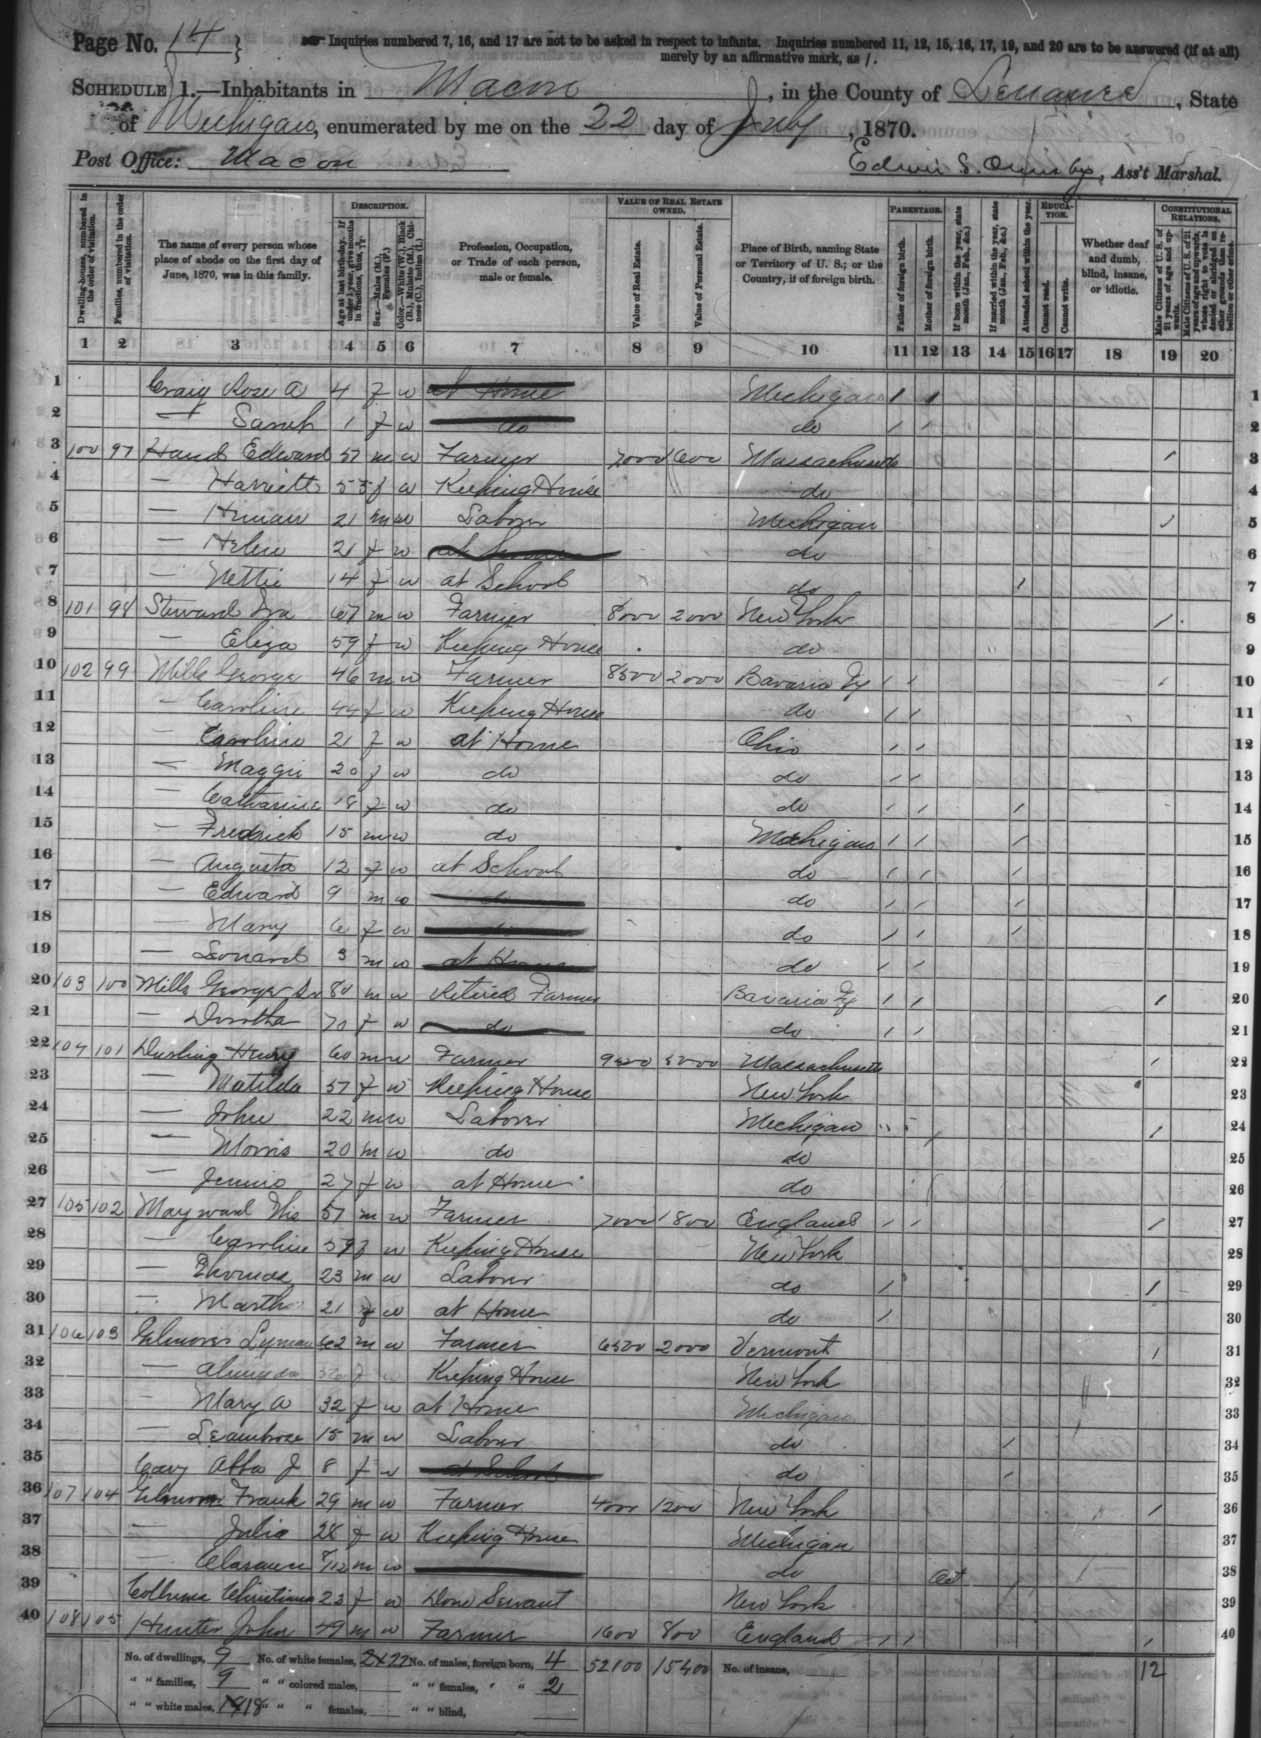 Page No. 14 } Inquiries numbered 7, 16, and 17 are not to be asked in respect to infants. Inquiries numbered 11, 12, 15, 16, 17, 19, and 20 are to be answered (if at all)
merely by an affirmative mark, as /.
Schedule 1.—Inhabitants in Macon, in the County of Lenawee, State
of Michigan, enumerated by me on the 22 day of July, 1870.
Post Office: Macon
Edwin S. Ormsby, Ass't Marshal.
Dwelling-houses, numbered in the order of visitation.
Families, numbered in the order of visitation.
The name of every person whose place of abode on the first day of June, 1870, was in this family.
Description.
Age at last birthday.
Sex.—Males (M.), Females (F.)
Color.—White (W.), Black (B.), Mulatto (M.), Chinese (C.), Indian (I.)
Profession, Occupation, or Trade of each person, male or female.
Value of Real Estate owned.
Value of Real Estate.
Value of Personal Estate.
Place of Birth, naming State or Territory of U. S.; or the Country, if of foreign birth.
Parentage.
Father of foreign birth.
Mother of foreign birth.
If born within the year, state month (Jan., Feb., &c.)
If married within the year, state month (Jan., Feb., &c.)
Attended school within the year.
Education.
Cannot read.
Cannot write.
Whether deaf and dumb, blind, insane, or idiotic.
Constitutional Relations.
Male Citizens of U. S. of 21 years of age and upwards.
1 2 3 4 5 6 7 8 9 10 11 12 13 14 15 16 17 18 19 20
1 Craig Rose A 4 f w at Home Michigan / / 1
2 — Sarah 1 f w do do / / 2
3 100 97 Hand Edward 57 m w Farmer 7000 Massachusetts / 3
4 — Harriett 55 f w Keeping House do 4
5 — Hiram 21 m w Labour Michigan / 5
6 — Helen 21 f w do 6
7 — Nettie 14 f w at School do / 7
8 101 98 Steward Ira 67 m w Farmer 8000 2000 New York / 8
9 — Eliza 59 f w Keeping House do 9
10 102 99 Mills George 46 m w Farmer 8500 2000 Bavaria / / / 10
11 — Caroline 44 f w Keeping House do / / 11
12 — Caroline 21 f w at Home Ohio / / 12
13 — Maggie 20 f w do do / / 13
14 — Catharine 18 f w do do / / / 14
15 — Fredrick 15 m w do Michigan / / / 15
16 — Augusta 12 f w at School do / / / 16
17 — Edward 9 m w do do / / / 17
18 — Mary 6 f w do / / / 18
19 — Leonard 3 m w at Home do / / 19
20 103 100 Mills George Sr 80 m w Retired Farmer Bavaria / / / 20
21 — Dorotha 70 f w do do / / 21
22 104 101 Darling Henry 60 m w Farmer Massachusetts / 22
23 — Matilda 57 f w Keeping House New York 23
24 — John 22 m w Laborer Michigan / 24
25 — Morris 20 m w do do 25
26 — Jennie 27 f w at Home do 26
27 105 102 Mayward 57 m w Farmer 7000 1800 England / / / 27
28 — Caroline 59 f w Keeping House New York 28
29 — Thomas 23 m w Laborer do / / 29
30 — Martha 21 f w at Home do / 30
31 106 103 Gilmore Lyman 62 m w Farmer 6500 2000 Vermont / 31
32 — f w Keeping House New York 32
33 — Mary A 32 f w at Home Michigan 33
34 — 15 m w Labour do / 34
35 Cary Abba J 8 f w at School do / 35
36 107 104 Gilmore Frank 29 m w Farmer 4000 1200 New York / 36
37 — Julia f w Keeping House Michigan 37
38 — Clarence /12 m w do Oct 38
39 Christiana 23 f w Dom Servant New York 39
40 108 105 Hunter John 49 m w Farmer 1600 800 England / / / 40
No. of dwellings, 9 No. of white females, 22 No. of males, foreign born, 4 52100 15400 No. of insane, 12
" " families, 9 " " colored males, " " females, " " 2
" " white males, 18 " " " females, " " blind,